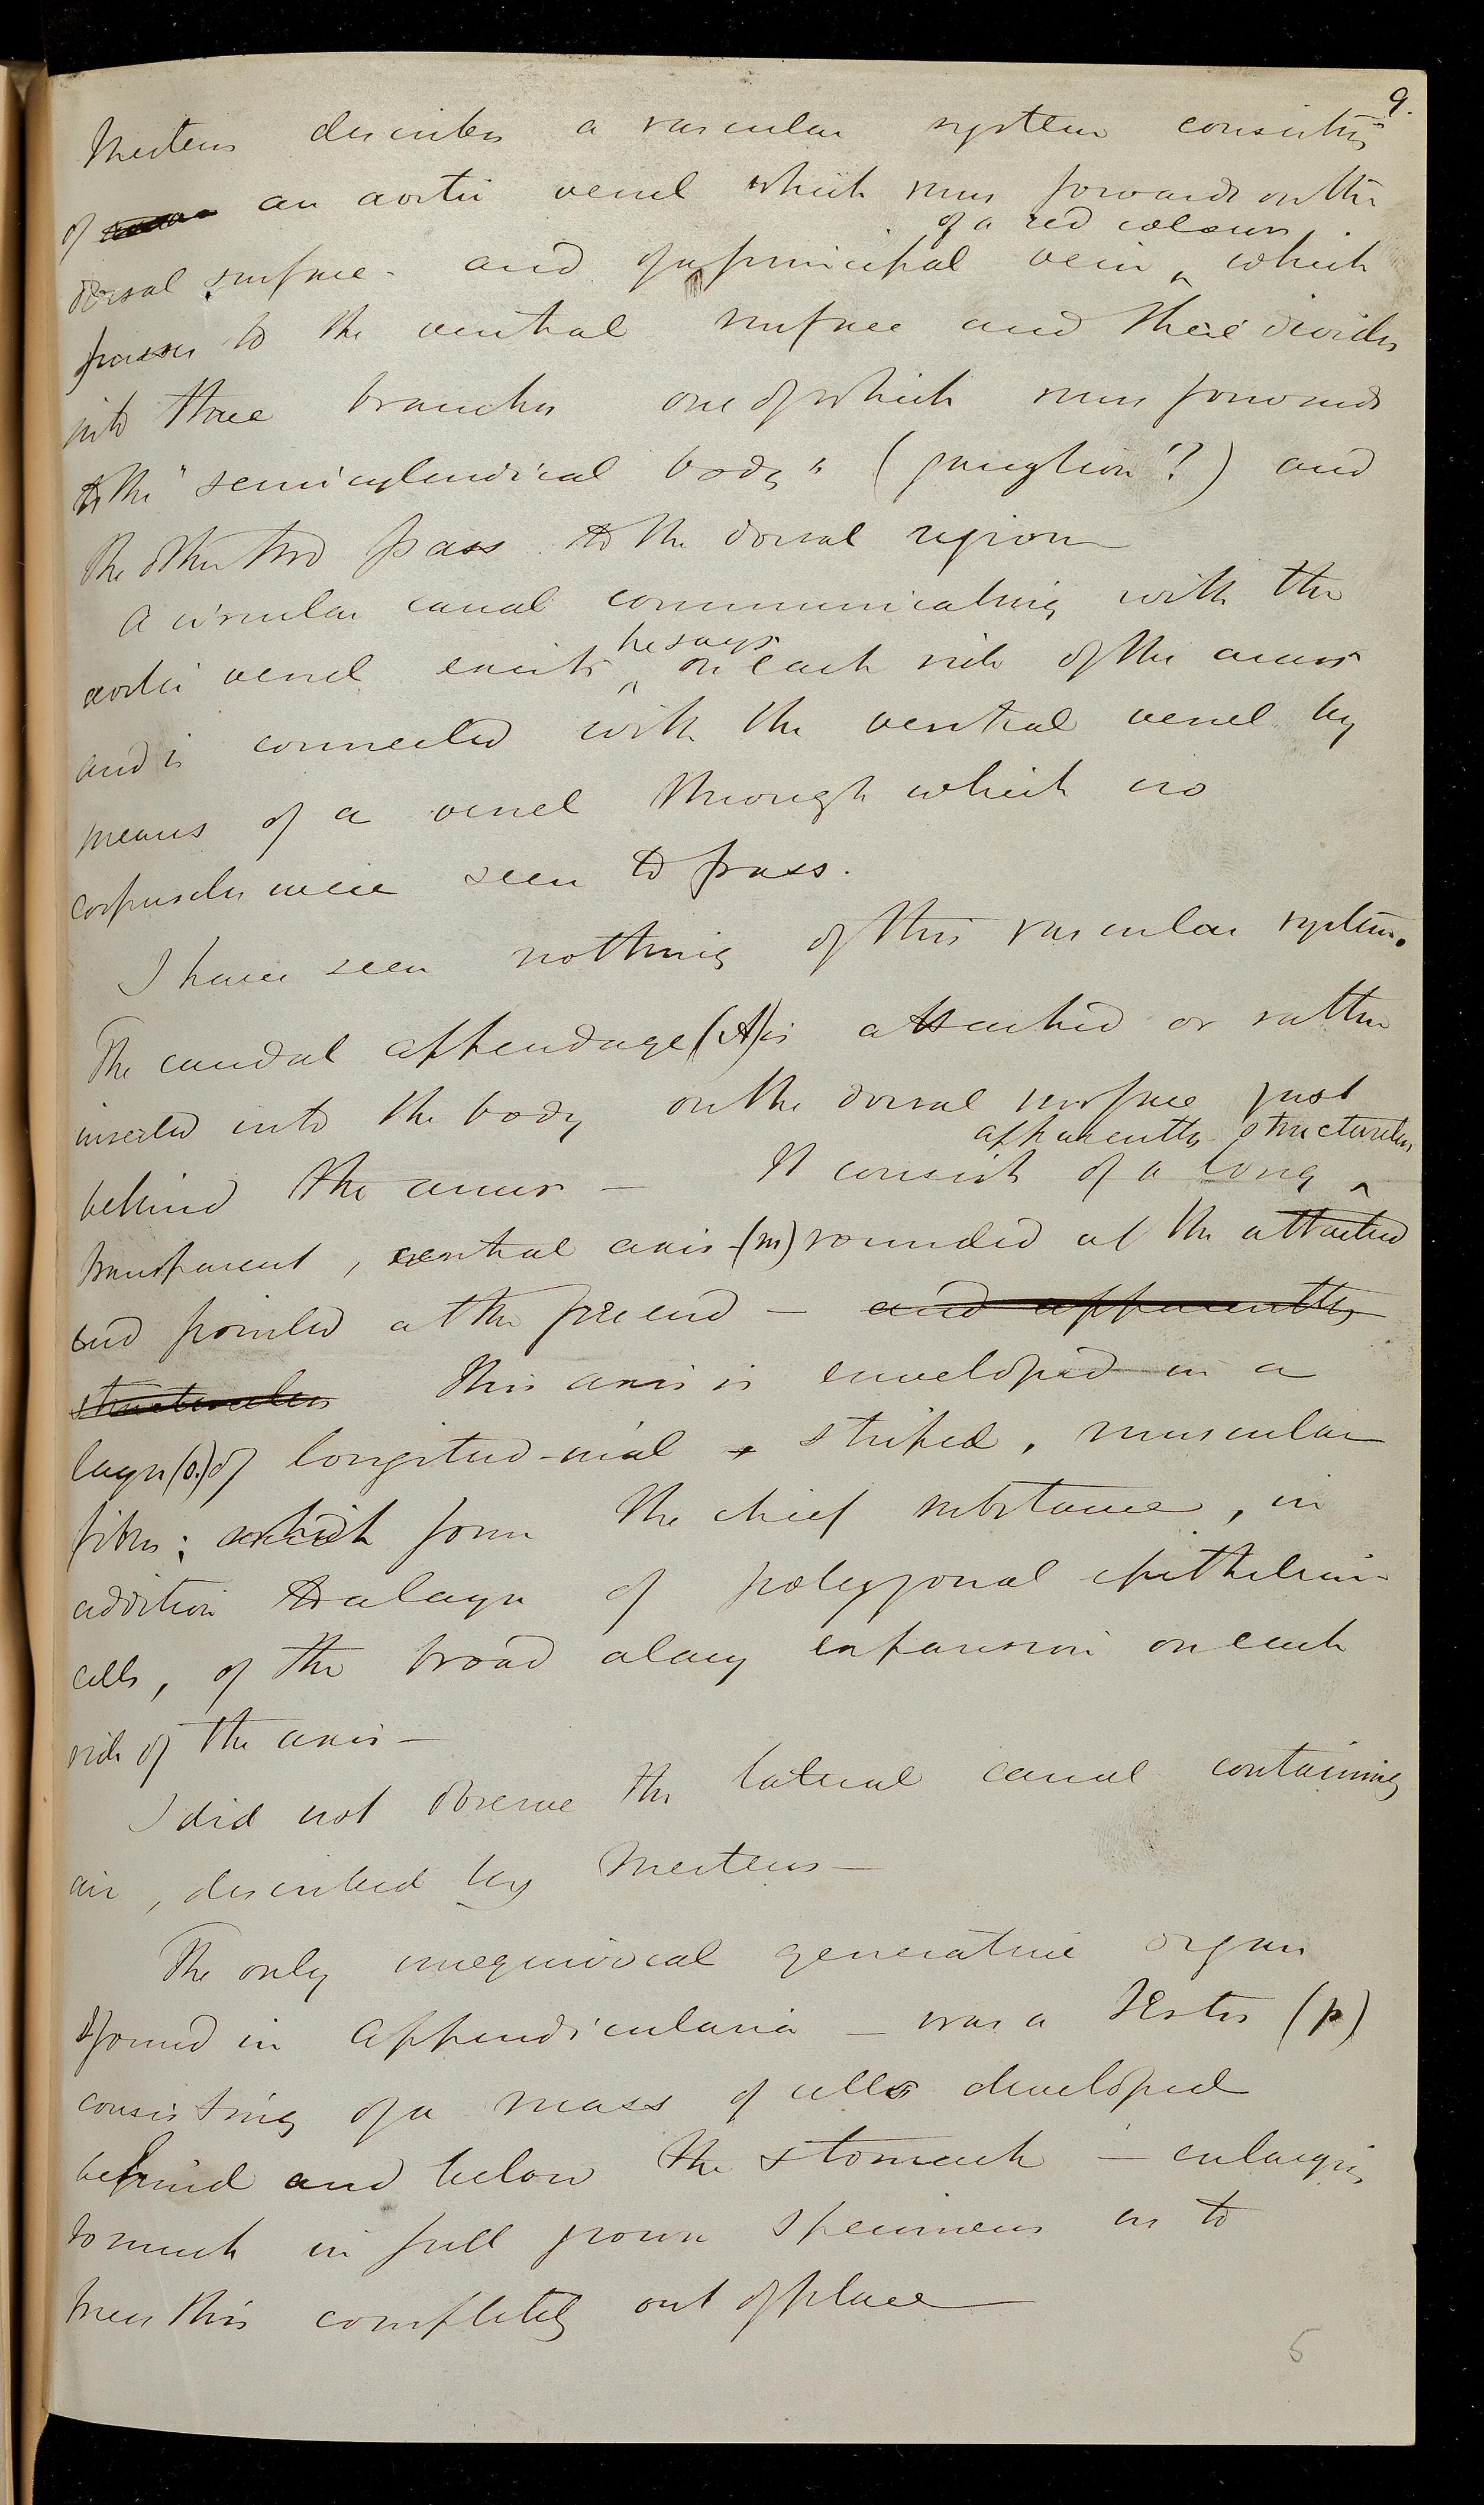 9.
Mertens describes a vascular system consisting
of an aortic vessel which runs forwards on the
of a red colour
dorsal surface and of a principal vein ‸ which
passes to the ventral surface and there divides
into three branches one of which runs forwards
to the "semicylindrical body" (ganglion?) and
the other two pass to the dorsal region
A circular canal communicating with the
he says
aortic vessel exists ‸ on each side of the anus
and is connected with the ventral vessel by
means of a vessel through which no
corpuscles were seen to pass.
I have seen nothing of this vascular system.
The caudal appendage (A) is attached or rather
inserted into the body on the dorsal surface just
apparently structureless
behind the anus — It consists of a long ‸
transparent, central axis (m) rounded at the attached
end pointed at the free end — and apparently
structureless This axis is enveloped in a
layer (o.) of longitud-inal striped, muscular
fibres; which form the chief substance, in
addition to a layer of polygonal epithelium
cells, of the broad alary expansion on each
side of the axis —
I did not observe the lateral canal containing
air, described by Mertens —
The only unequivocal generative organ
I found in Appendicularia — was a Testis (p)
consisting of a mass of cells developed
behind and below the stomach — enlarging
so much in full grown specimens as to
press this completely out of place
5